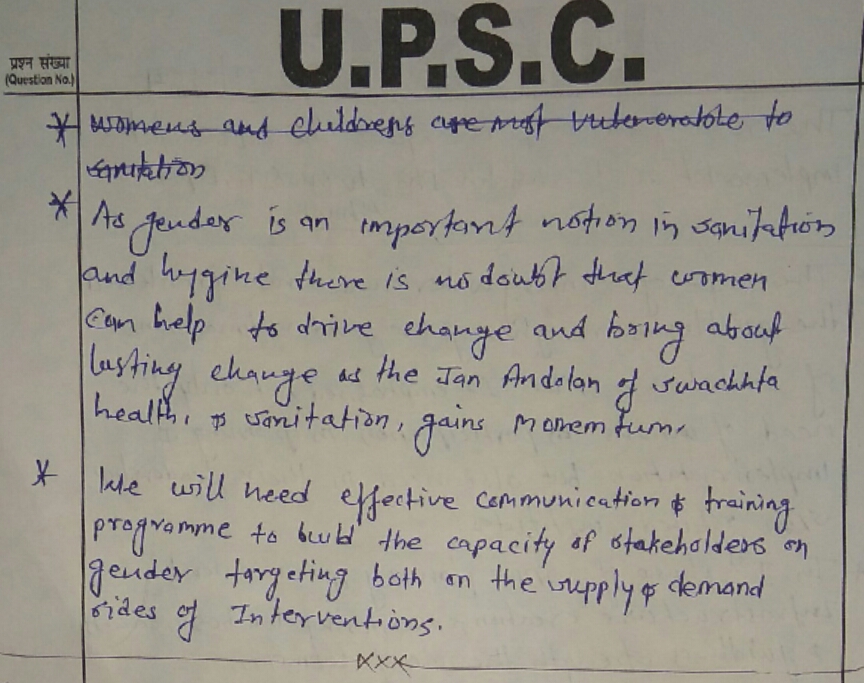 U.P.S.C.
प्रश्न संख्या
(Question No.)
* womens and childrens are most vulenerable to
sanitation
* As gender is an important notion in sanitation
and hygine there is no doubt that women
can help to drive change and bring about
lasting change as the Jan Andolan of swachhta
health, & sanitation, gains momentum.
* We will need effective communication & training
programme to build the capacity of stakeholders on
gender targeting both on the supply & demand
sides of Interventions.
xxx